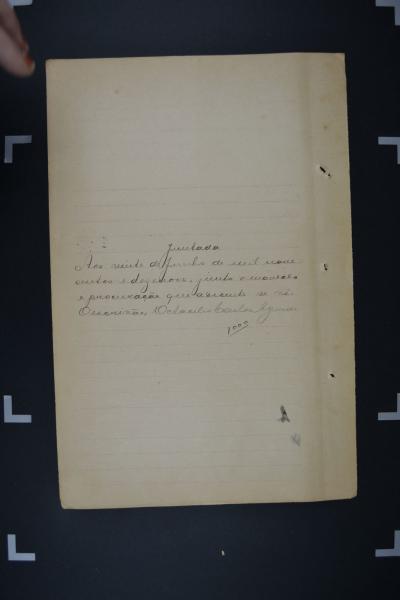 Juntada
Aos vinte de Junho de mil nove
centos e dezenove, junto o mandado
e procuração que adiante se vê.
O escrivão, Octacilio
1000